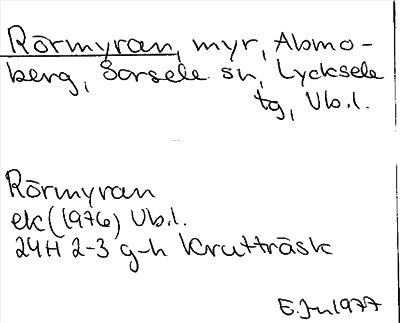 Rörmyran, myr, Abmo-
berg, Sorsele sn, Lycksele
tg, Vb.l.
Rörmyran
ek (1976) Vb.l.
24H 2-3 g-h Krutträsk
E. Jn 1977